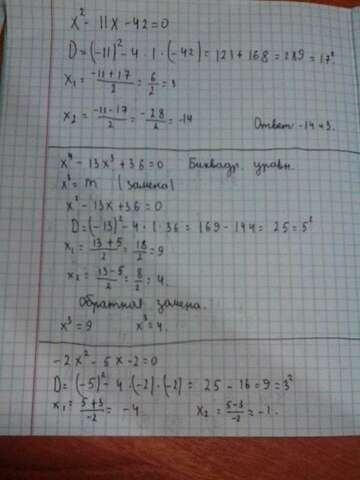 x² - 11x - 42 = 0
D = (-11)² - 4 · 1 · (-42) = 121 + 168 = 289 = 17²
x₁ = (-11+17)/2 = 6/2 = 3
x₂ = (-11-17)/2 = -28/2 = -14
Ответ -14 и 3.
x⁴ - 13x³ + 36 = 0 Биквадр. уравн.
x³ = m (замена)
x² - 13x + 36 = 0
D = (-13)² - 4 · 1 · 36 = 169 - 144 = 25 = 5²
x₁ = (13+5)/2 = 18/2 = 9
x₂ = (13-5)/2 = 8/2 = 4.
Обратная замена.
x³ = 9 x³ = 4.
-2x² - 5x - 2 = 0
D = (-5)² - 4 · (-2) · (-2) = 25 - 16 = 9 = 3²
x₁ = (5+3)/-2 = -4 x₂ = (5-3)/-2 = -1.